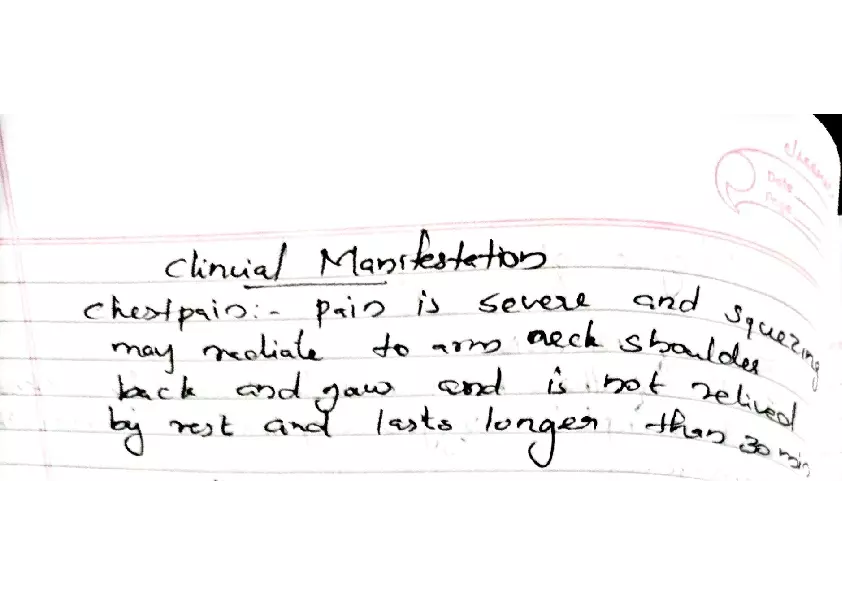 Date
Page
Clincial Manifestation
Chestpain:- pain is severe and squezing
may rediate to arm neck shoulder
back and jaw and is not relived
by rest and lasts longer than 30 min